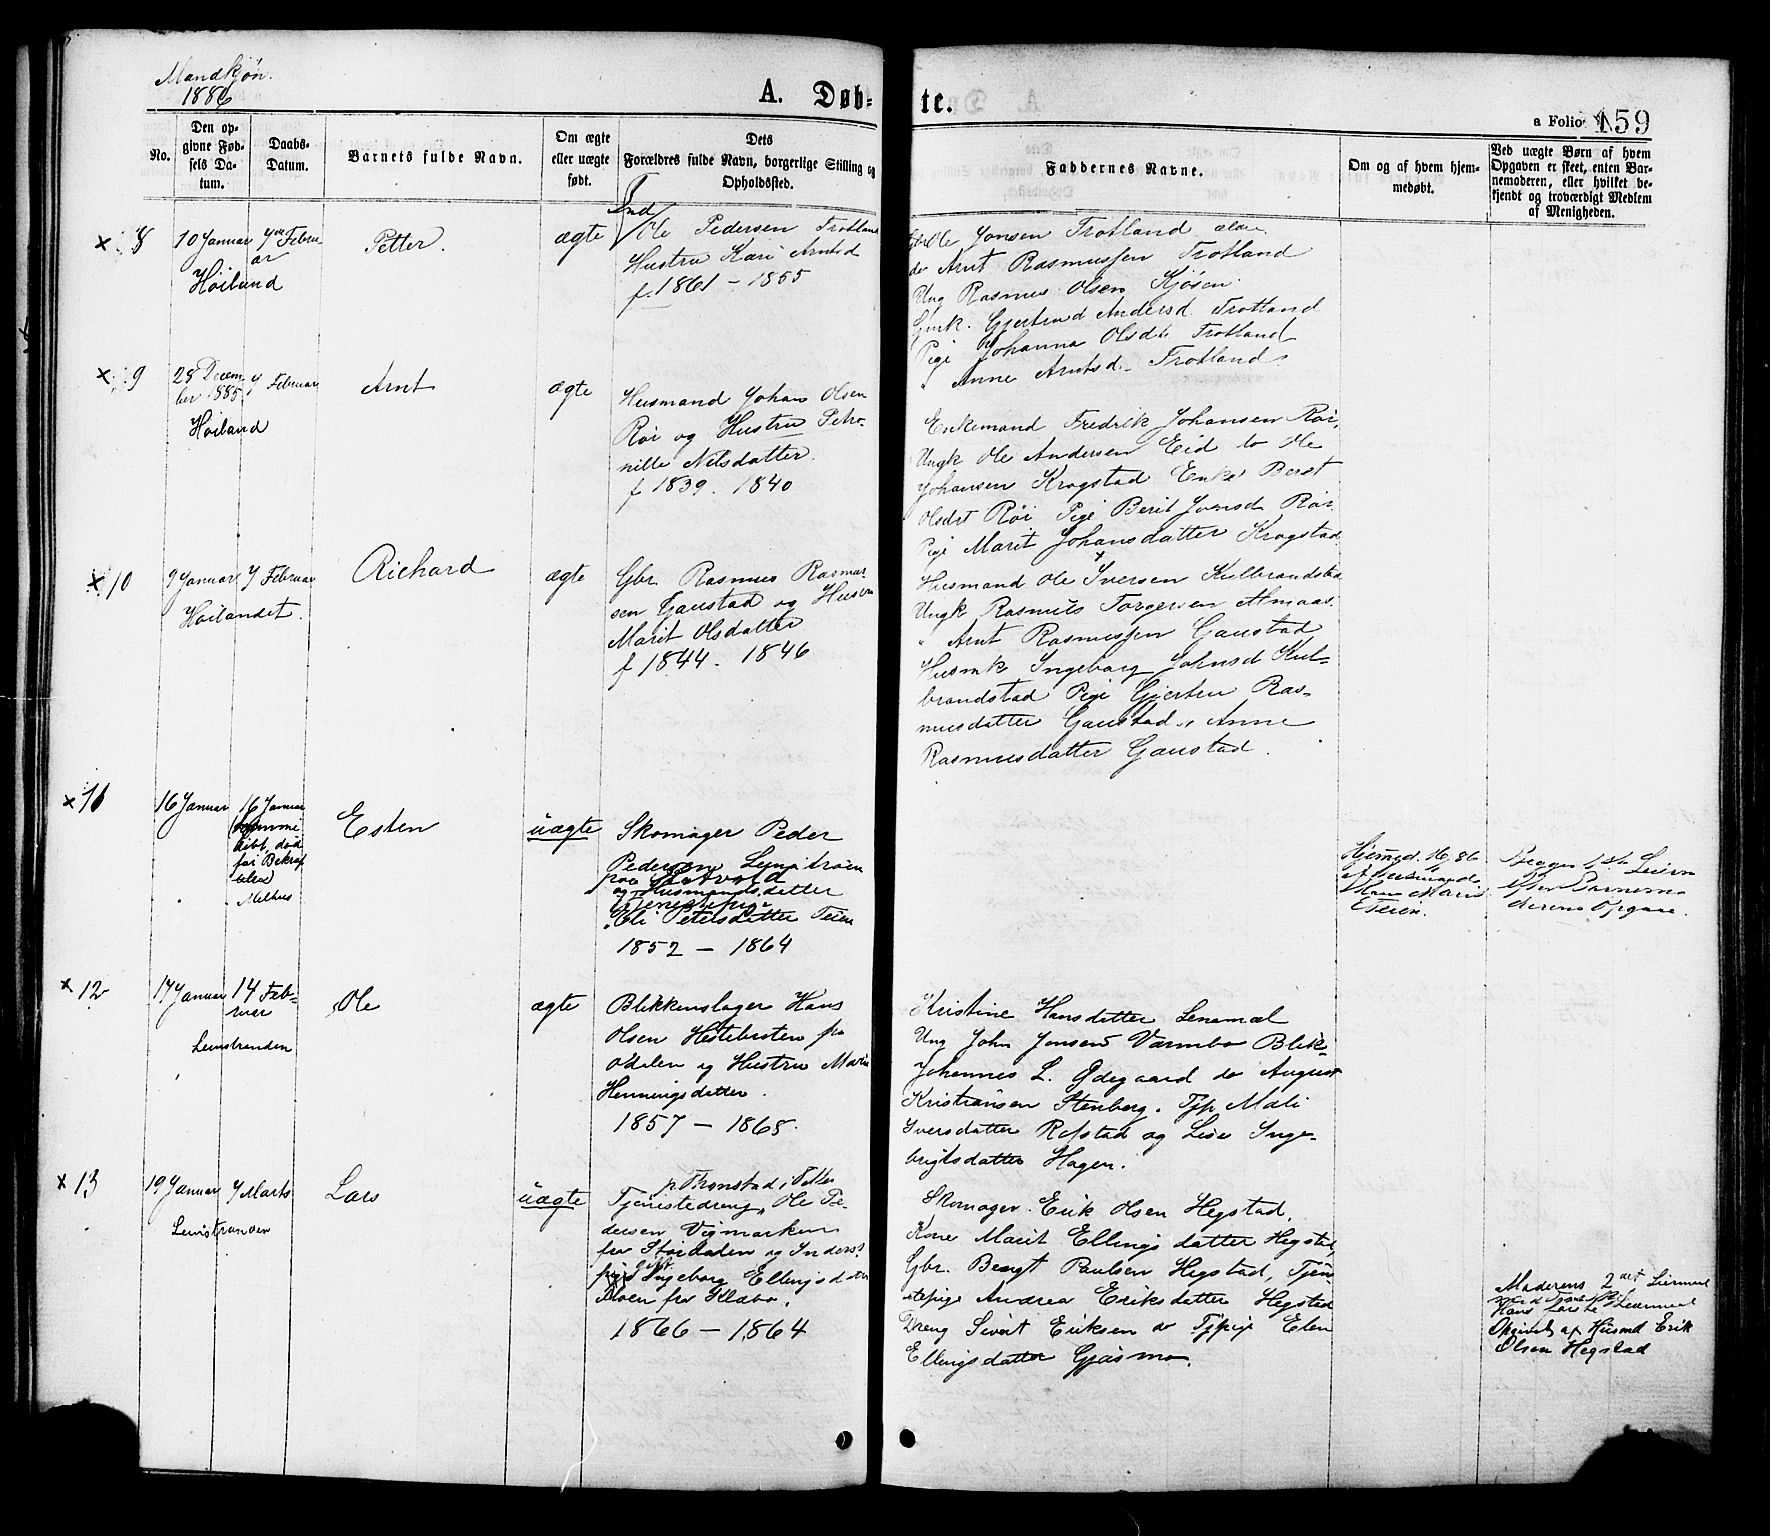 Mandkjøn.
1886
A. Døb-
te.
a Folio 159
No.
Den op-
givne Fød-
sels Da-
tum.
Daabs-
Datum.
Barnets fulde Navn.
Om ægte
eller uægte
født.
Dets
Forældres fulde Navn, borgerlige Stilling og
Opholdssted.
Faddernes Navne.
Om og af hvem hjem-
medøbt.
Ved uægte Børn af hvem
Opgaven er skeet, enten Bar-
nemoderen, eller hvilket be-
kjendt og troværdigt Medlem
af Menigheden.
8
10 Januar
Höiland
7de Febru
ar
Petter.
ægte
Ind
Ole Pedersen Trotland
Hustru Kari Arntsd
f. 1861 - 1855
Gbr Ole Jonsen Trotland
do Arnt Rasmussen Trotland
Ung Rasmus Olsen Kjösen
Gbrk. Gjertrud Andersd. Trotland
Pige Johanna Olsdt Trotland
" Anne Arntsd. Trotland
9
28 Decem-
ber 1885
Höiland
7 Februar
Arnt
ægte
Husmand Johan Olsen
Röi og Hustru Petro-
nille Nilsdatter.
f 1839. 1840
Enkemand Fredrik Johansen Röi,
Ungk Ole Andersen Eid to Ole
Johansen Krogstad Enke Beret
Olsdt Röi Pige Berit Joensd Röi
Pige Marit Johansdatter Krogstad
10
9 Januar
Höilandet.
7 Februar
Richard
ægte
Gbr. Rasmus Rasmus-
sen Gaustad og Hustru
Marit Olsdatter
f 1844. 1846
Husmand Ole Iversen Kulbrandstad
Ungk Rasmus Torgersen Almaas.
" Arnt Rasmussen Gaustad
Husmk Ingeborg Johnsd Kul-
brandstad Pige Gjertru Ras-
musdatter Gaustad, Anne
Rasmusdatter Gaustad.
11
16 Januar
16 Januar
död
för Bekræf
telse
Melhus
Esten
uægte
Skomager Peder
Pedersen
og Husmandsdatter
Tjenestepige
Eli Petersdatter Teien
1852 - 1864
Hjemmed. 16/1 86
af Husmand
Teien.
Begges 1ste Leierm
efter Barnemo
derens Opgave.
12
17 Januar
Leinstranden
14 Feb-
ruar
Ole
ægte
Blikkenslager Hans
Olsen Hestebroten fra
Odalen og Hustru Marie
Henningsdatter.
1857 - 1865.
Kristine Hansdatter Lenamæl
Ung John Jonsen Varmbo Blik-
Johannes L. Ødegaard do August
Kristiansen Stenberg. Tjp Mali
Iversdatter Rofstad og Lise Inge-
brigtsdatter Hagen.
13
19 Januar
Leinstranden
7 Marts
Lars
uægte
p. Thonstad i Tiller
Tjenestedreng Ole Pe-
dersen Vigmarken
fra Stördalen og Inders.
pige Ingeborg Ellingsdatter
Moen fra Klæbo.
1866 - 1864
Skomager Erik Olsen Hegstad,
Kone Marit Ellingsdatter Hegstad,
Gbr. Bengt Paulsen Hegstad, Tjen
estepige Andrea Eriksdatter Hegstad
Dreng Sivert Eriksen do Tjpige Elen
Ellingsdatter Gjösmo.
Moderens 2det Leiermaal
Hans første Leiermaal
Opgivet af Husmd Erik
Olsen Hegstad